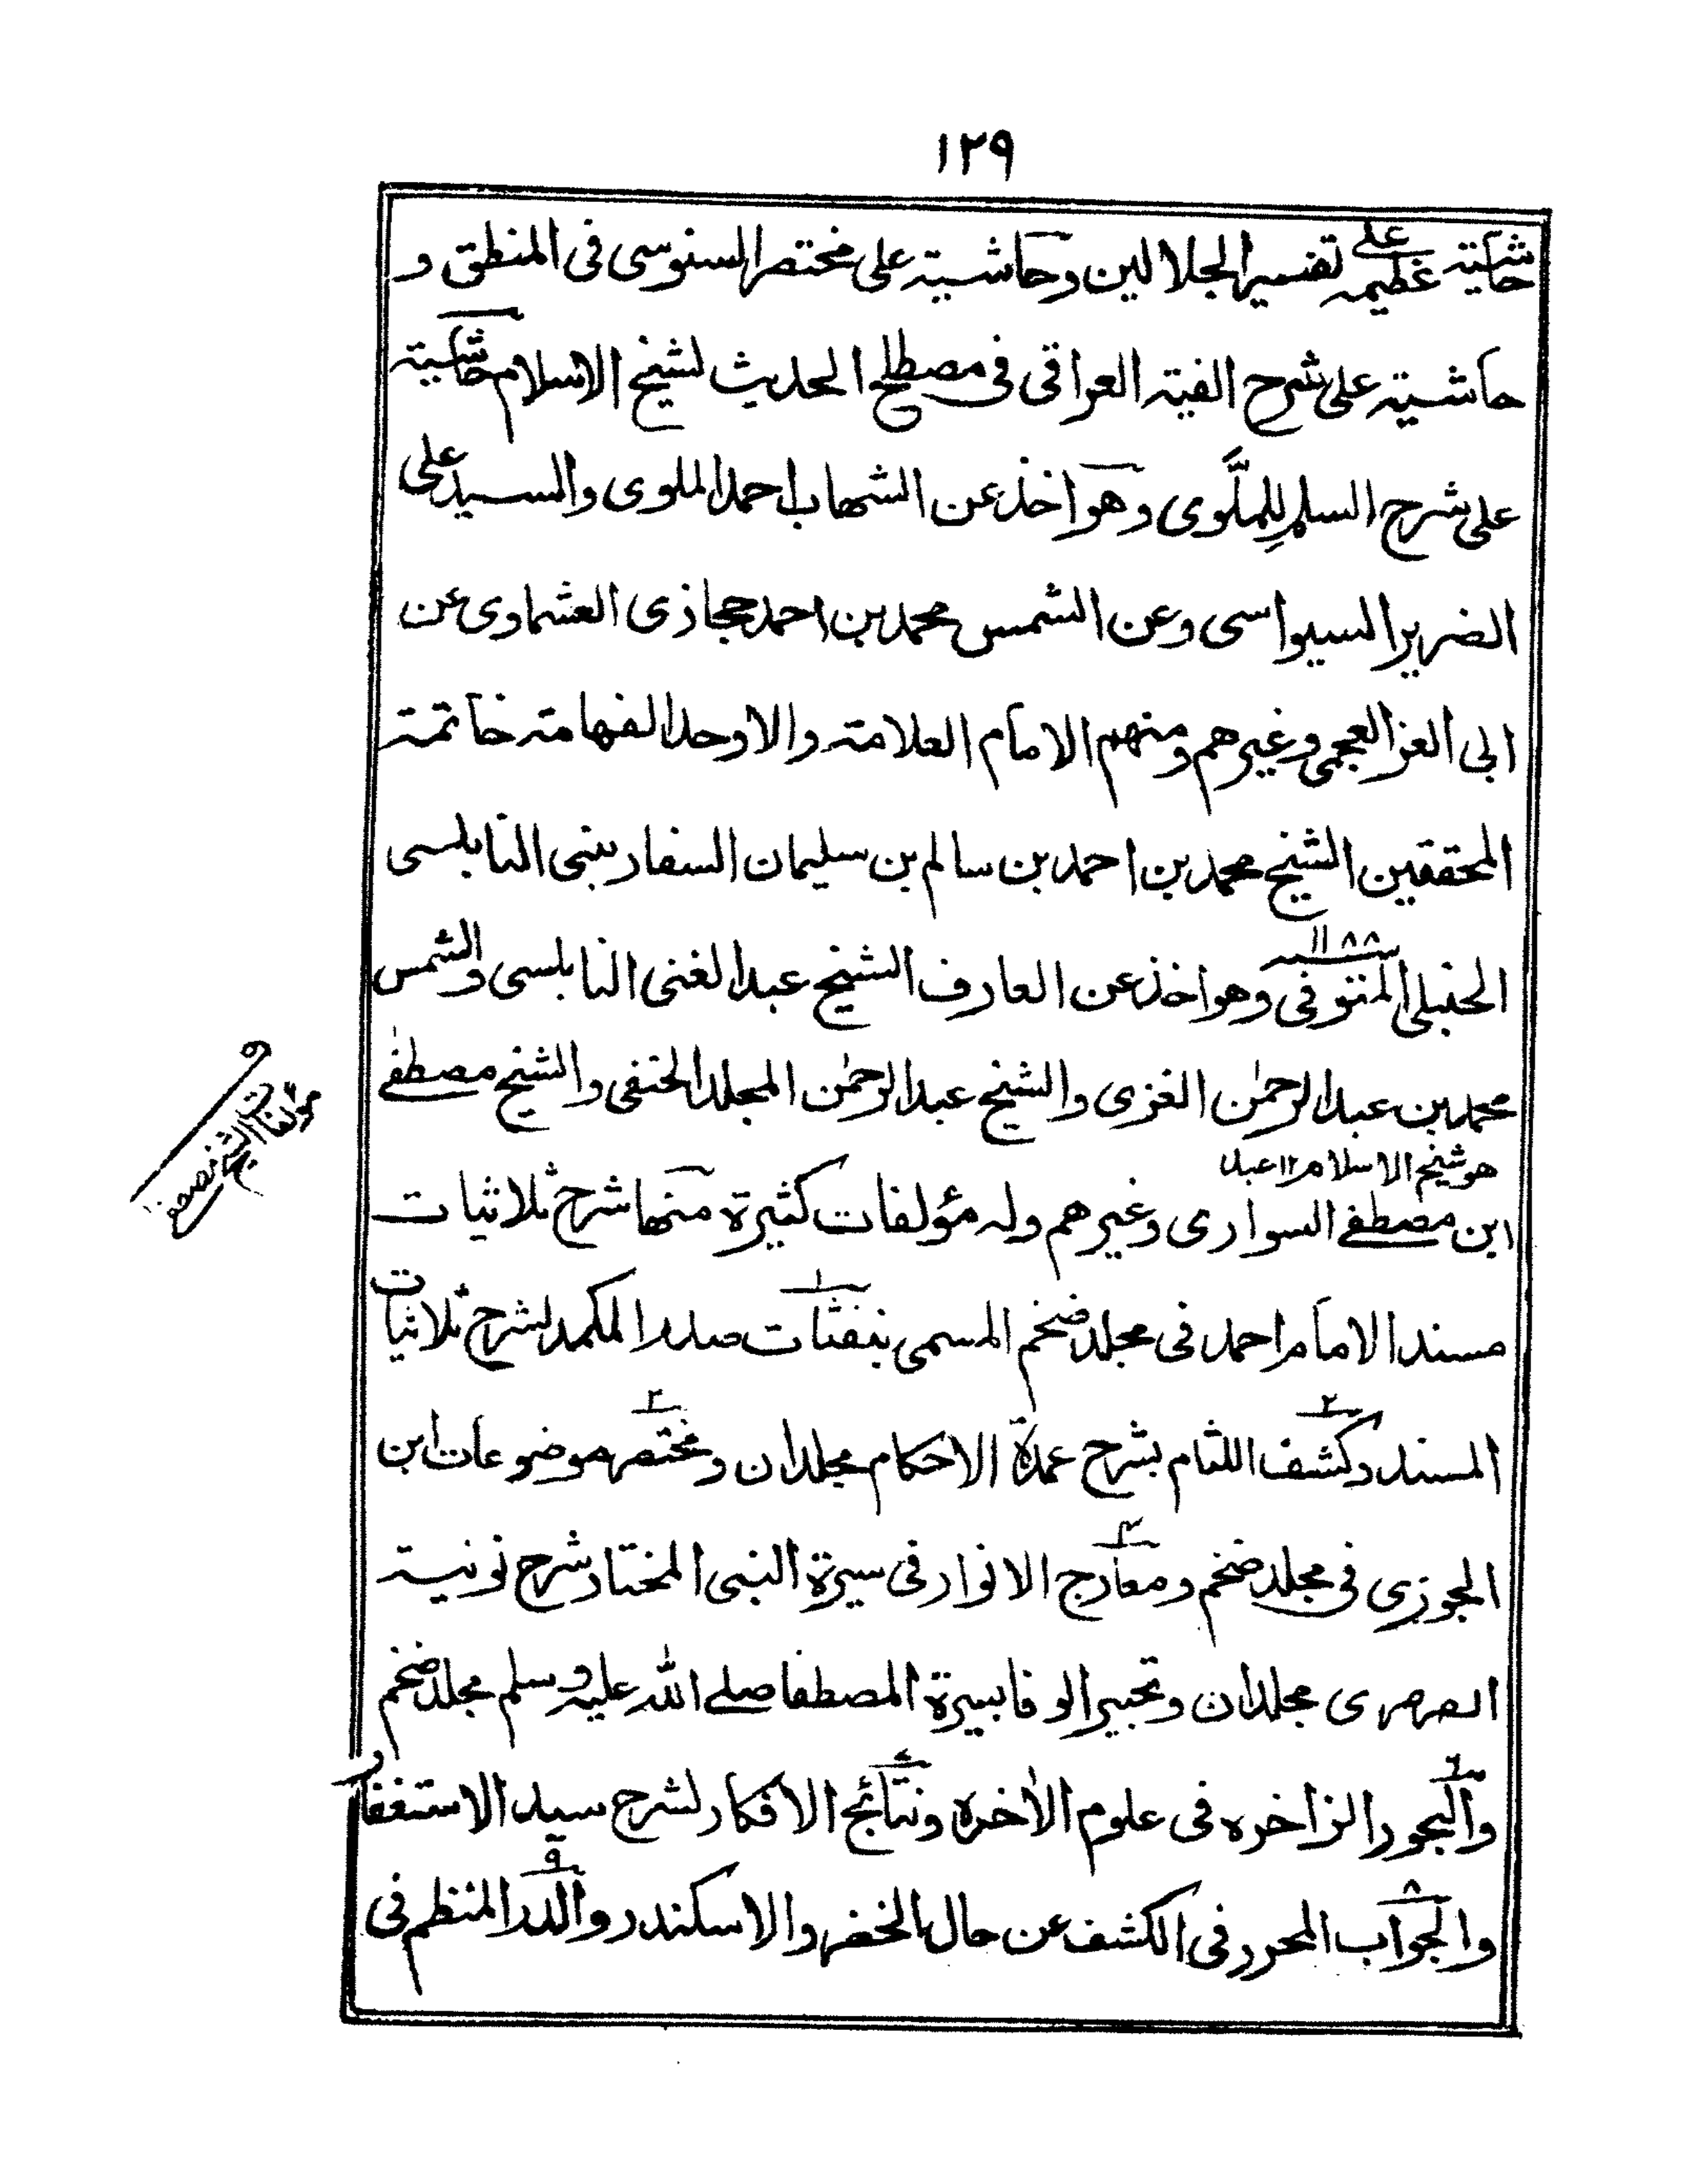 ١٢٩
حاشية عظيمة على تفسير الجلالين وحاشية على مختصر السنوسى فى المنطق و
حاشية على شرح الفية العراقى فى مصطلح الحديث لشيخ الاسلام حاشية
على شرح السلم لِلملَّوى وهو اخذ عن الشهاب احمد الملوى والسيد على
الضرير السيواسى وعن الشمس محمد بن احمد حجازى العشماوى عن
ابى العز العجمى وغيرهم ومنهم الامام العلامة والاوحد الفهامة خاتمة
المحققين الشيخ محمد بن احمد بن سالم بن سليمان السفارينى النابلسى
الحنبلى المتوفى سنة ١١٨٨ وهو اخذ عن العارف الشيخ عبد الغنى النابلسى والشمس
محمد بن عبد الرحمٰن الغزى والشيخ عبد الرحمٰن المجلد الحنفى والشيخ مصطفے
هو شيخ الاسلام ١٢ عبد
ابن مصطفے السوارى وغيرهم وله مؤلفات كثيرة منها شرح ثلاثيات
مؤلفات الشيخ
مسند الامام احمد فى مجلد ضخم المسمى بنفثات ١ صدر المكمد لشرح ثلاثيات
المسند وكشف ٢ اللثام بشرح عمدة الاحكام مجلدان ومختصر ٣ موضوعات ابن
الجوزى فى مجلد ضخم ومعارج ٤ الانوار فى سيرة النبى المختار شرح نونية
الصرصرى مجلدان وتحبير الوفا بسيرة المصطفا صلے الله عليه وسلم مجلد ضخم
والبحور ٦ الزاخره فى علوم الاٰخره ونتائج ٧ الافكار لشرح سيد الاستغفار
والجواب ٨ المحرر فى الكشف عن حال الخضر والاسكندر والدر ٩ المنظم فى